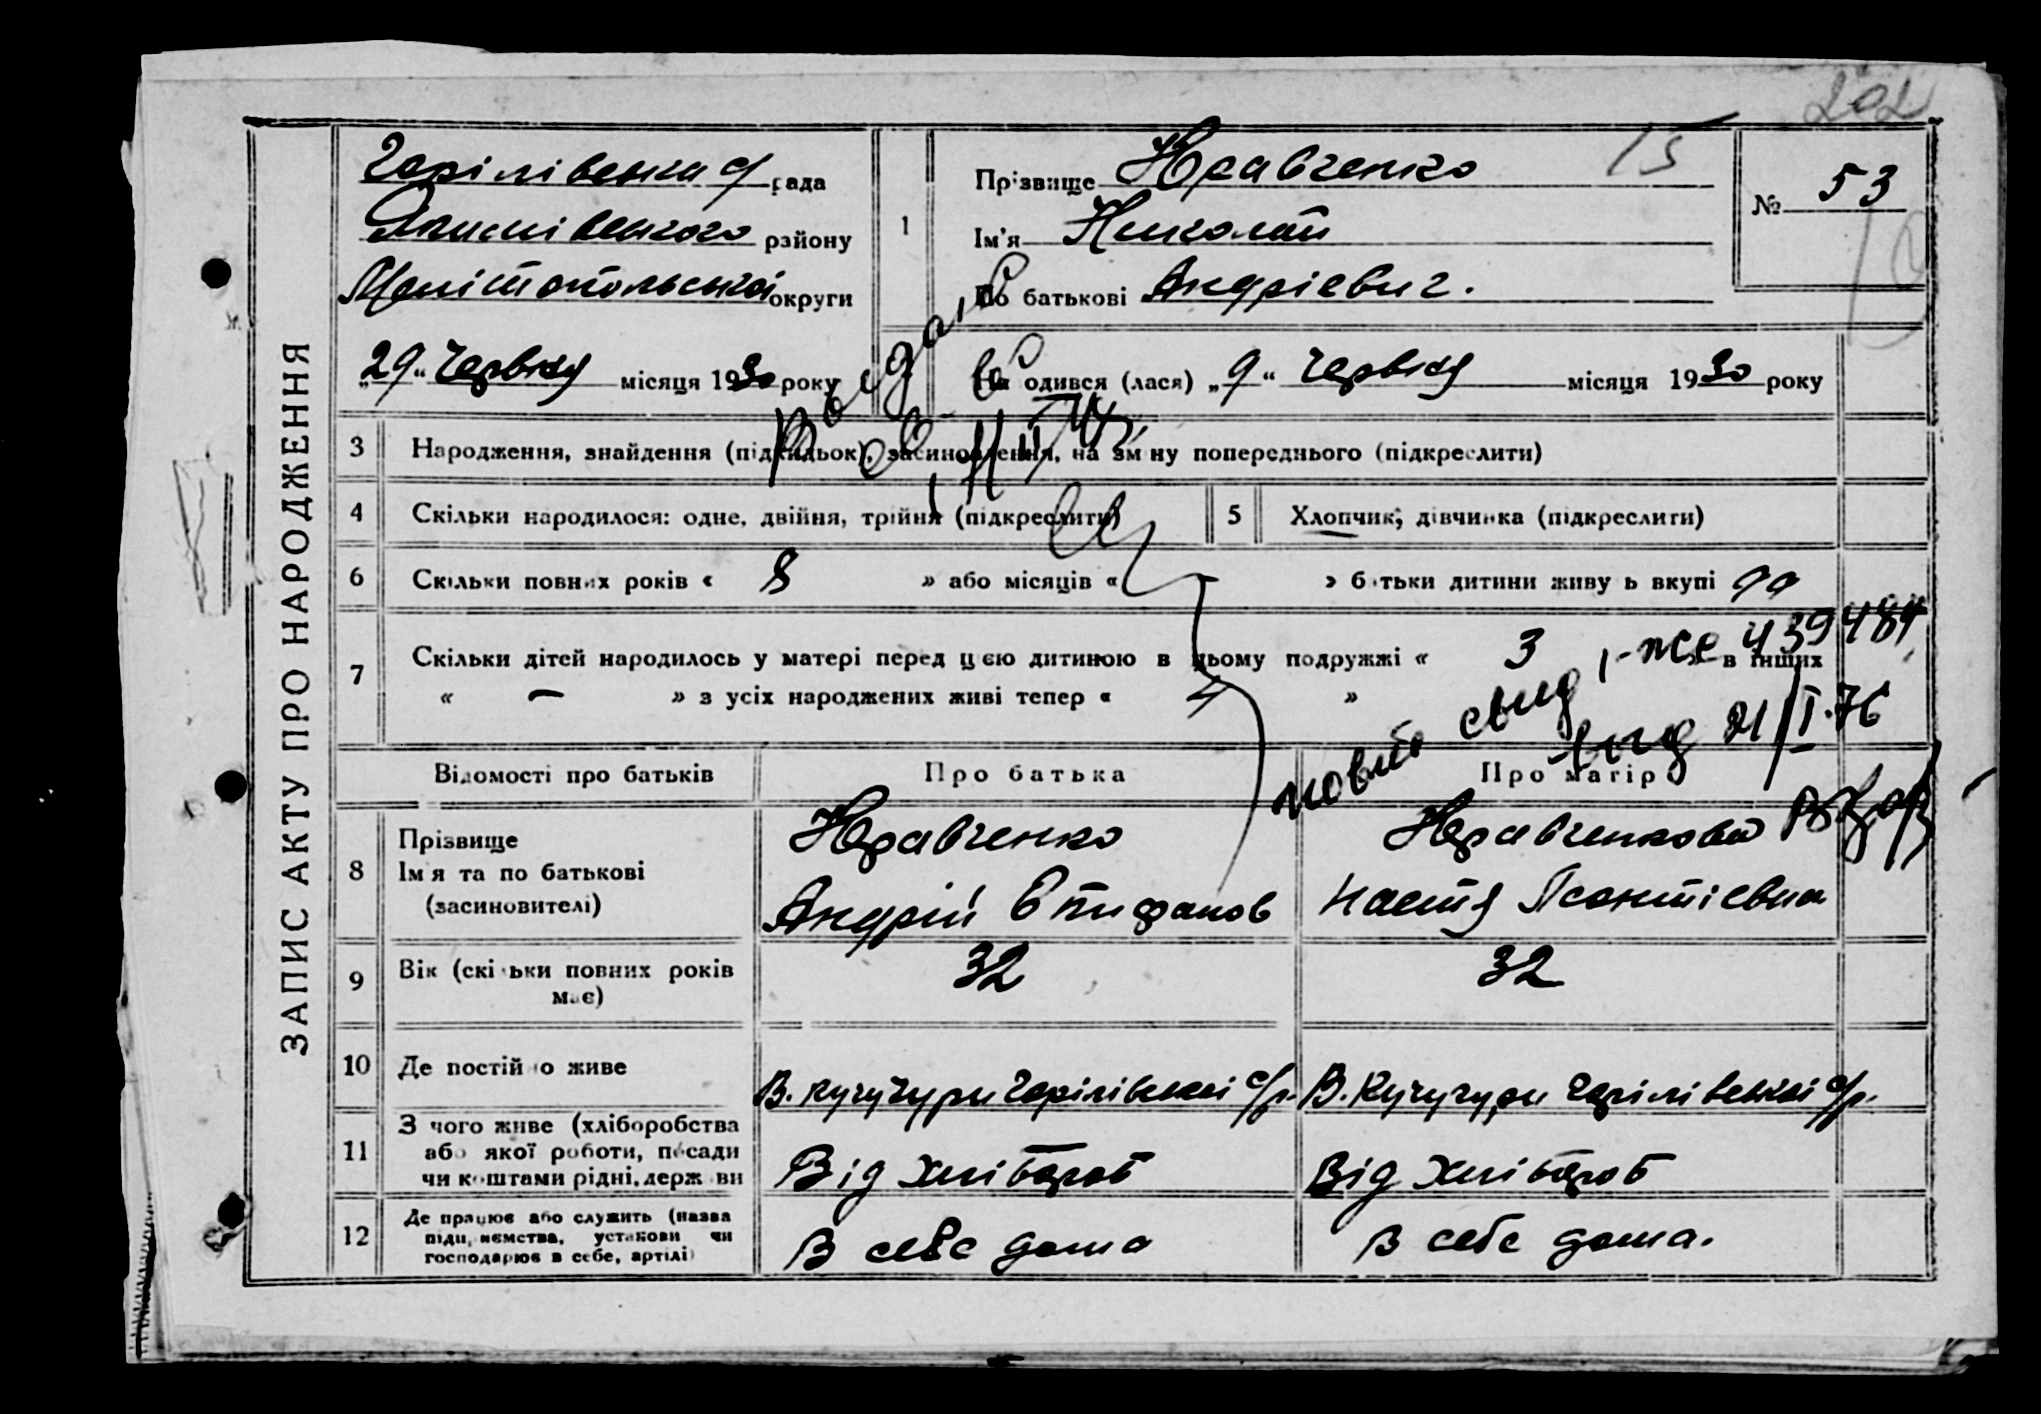 202
15
ЗАПИС АКТУ ПРО НАРОДЖЕННЯ
рада
району
Мелітопольської округи
„29“ Червня місяця 1930 року
1
Прізвище Кравченко
Ім'я Николай
По батькові Андрієвич.
№ 53
Народився (лася) „9“ Червня місяця 1930 року
3 Народження, знайдення (підкидьок), засиновлення, на зміну попереднього (підкреслити)
4 Скільки народилося: одне, двійня, трійня (підкреслити)
5 Хлопчик, дівчинка (підкреслити)
6 Скільки повних років « 8 » або місяців « – » батьки дитини живуть вкупі
7 Скільки дітей народилось у матері перед цією дитиною в цьому подружжі « 3 » в інших
« – » з усіх народжених живі тепер « 4 »
439484
21/I.76
Відомості про батьків
Про батька
Про матір
8 Прізвище
Ім'я та по батькові
(засиновителі)
Кравченко
Андрій Епифанов
Кравченкова
Настя Леонтієвна
9 Вік (скільки повних років має)
32
32
10 Де постійно живе
В. Кучугури с/р.
В. Кучугури с/р.
11 З чого живе (хліборобства
або якої роботи, посади
чи коштами рідні, держави
Від хлібороб
Від хлібороб
12 Де працює або служить (назва
підприємства, установи чи
господарює в себе, артілі)
В себе дома
В себе дома.